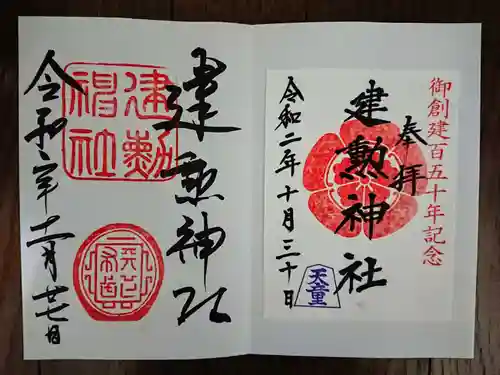 御創建百五十年記念
奉拝
建勲神社
令和二年十月三十日
天童
建勲神社
建勲
神社
令和六年十二月廿七日